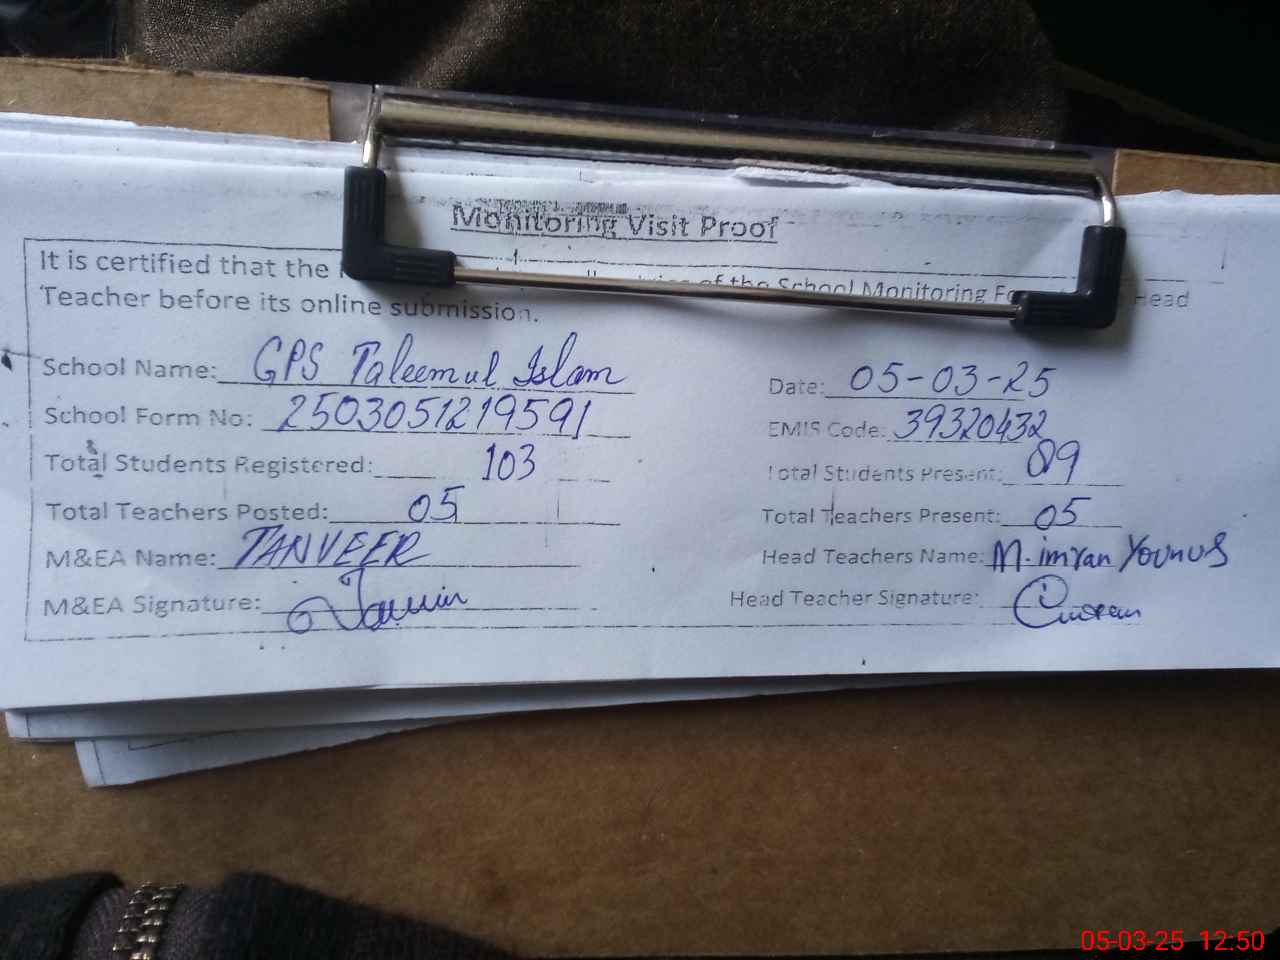 Monitoring Visit Proof
It is certified that the of the School Monitoring Head
Teacher before its online submission.
School Name: GPS Taleemul Islam Date: 05-03-25
School Form No: 2503051219591 EMIS Code: 39320432
Total Students Registered: 103 Total Students Present: 89
Total Teachers Posted: 05 Total Teachers Present: 05
M&EA Name: TANVEER Head Teachers Name: M. imran Younus
M&EA Signature: Head Teacher Signature:
05-03-25 12:50